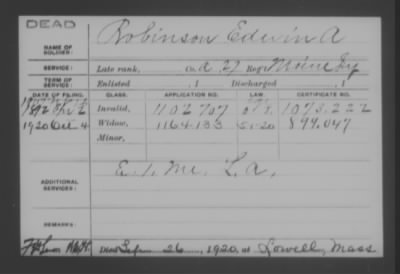 DEAD
NAME OF SOLDIER: Robinson Edwin A
SERVICE: Late rank, Co. A 27 Reg't Maine Inf
TERM OF SERVICE: Enlisted , 1 Discharged , 1
DATE OF FILING. CLASS. APPLICATION NO. LAW. CERTIFICATE NO.
1892 Invalid, 1102707 1073.222
1920 Oct 4 Widow, 1164133 S1-20 894.047
Minor,
ADDITIONAL SERVICES: E. 1. Me. L.A.
REMARKS:
Died Sep 26, 1920, at Lowell, Mass